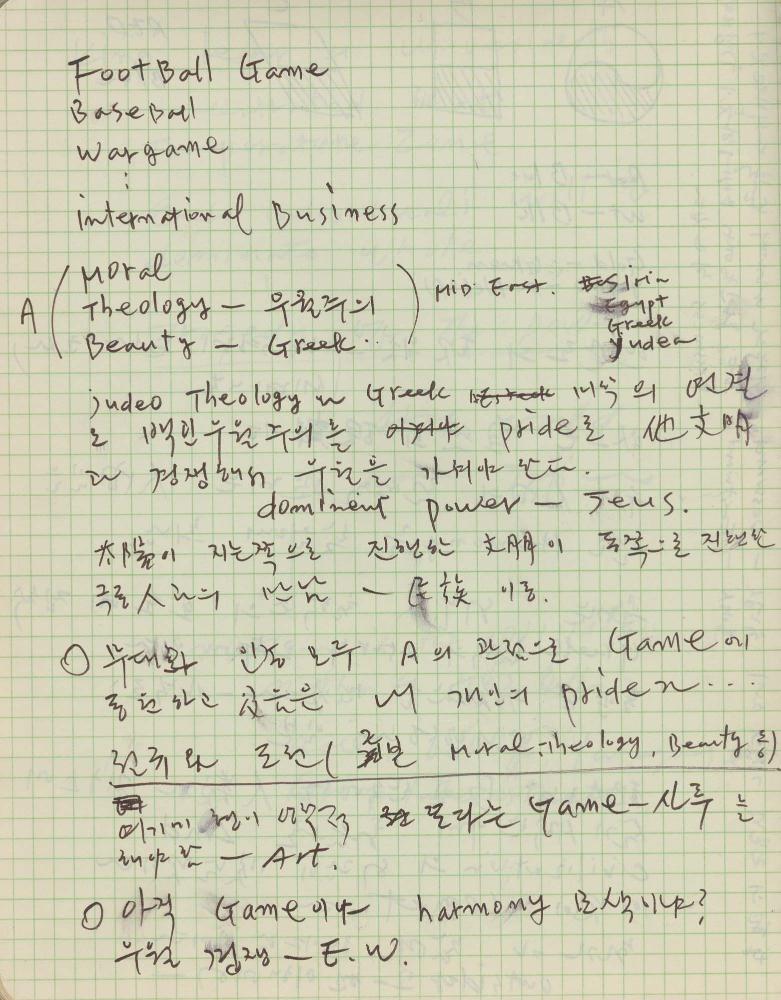 FootBall Game
BaseBall
Wargame
international Business
A ( Moral
Theology — 우월주의
Beauty — Greek ) MiD East. Siria
Egypt
Greek
Judea
judeo Theology Greek 의 연결
로 백인우월주의를 pride로 他文明
과 경쟁해서 우월을 가져야 한다.
dominent power — Jeus.
太陽이 지는쪽으로 진행한 文明이 동쪽으로 진행한
극동人과의 만남 — 民族 이동.
○ 무대화 인종 모두 A의 관점으로 Game에
동원하고 싶은은 내 개인의 pride
전쥐와 도전( Moral, Theology, Beauty 등)
여기에 또다른 Game — 사투를
해야 함 — Art.
○ 아직 Game이냐 harmony 모색이냐?
우월 경쟁 — E.W.